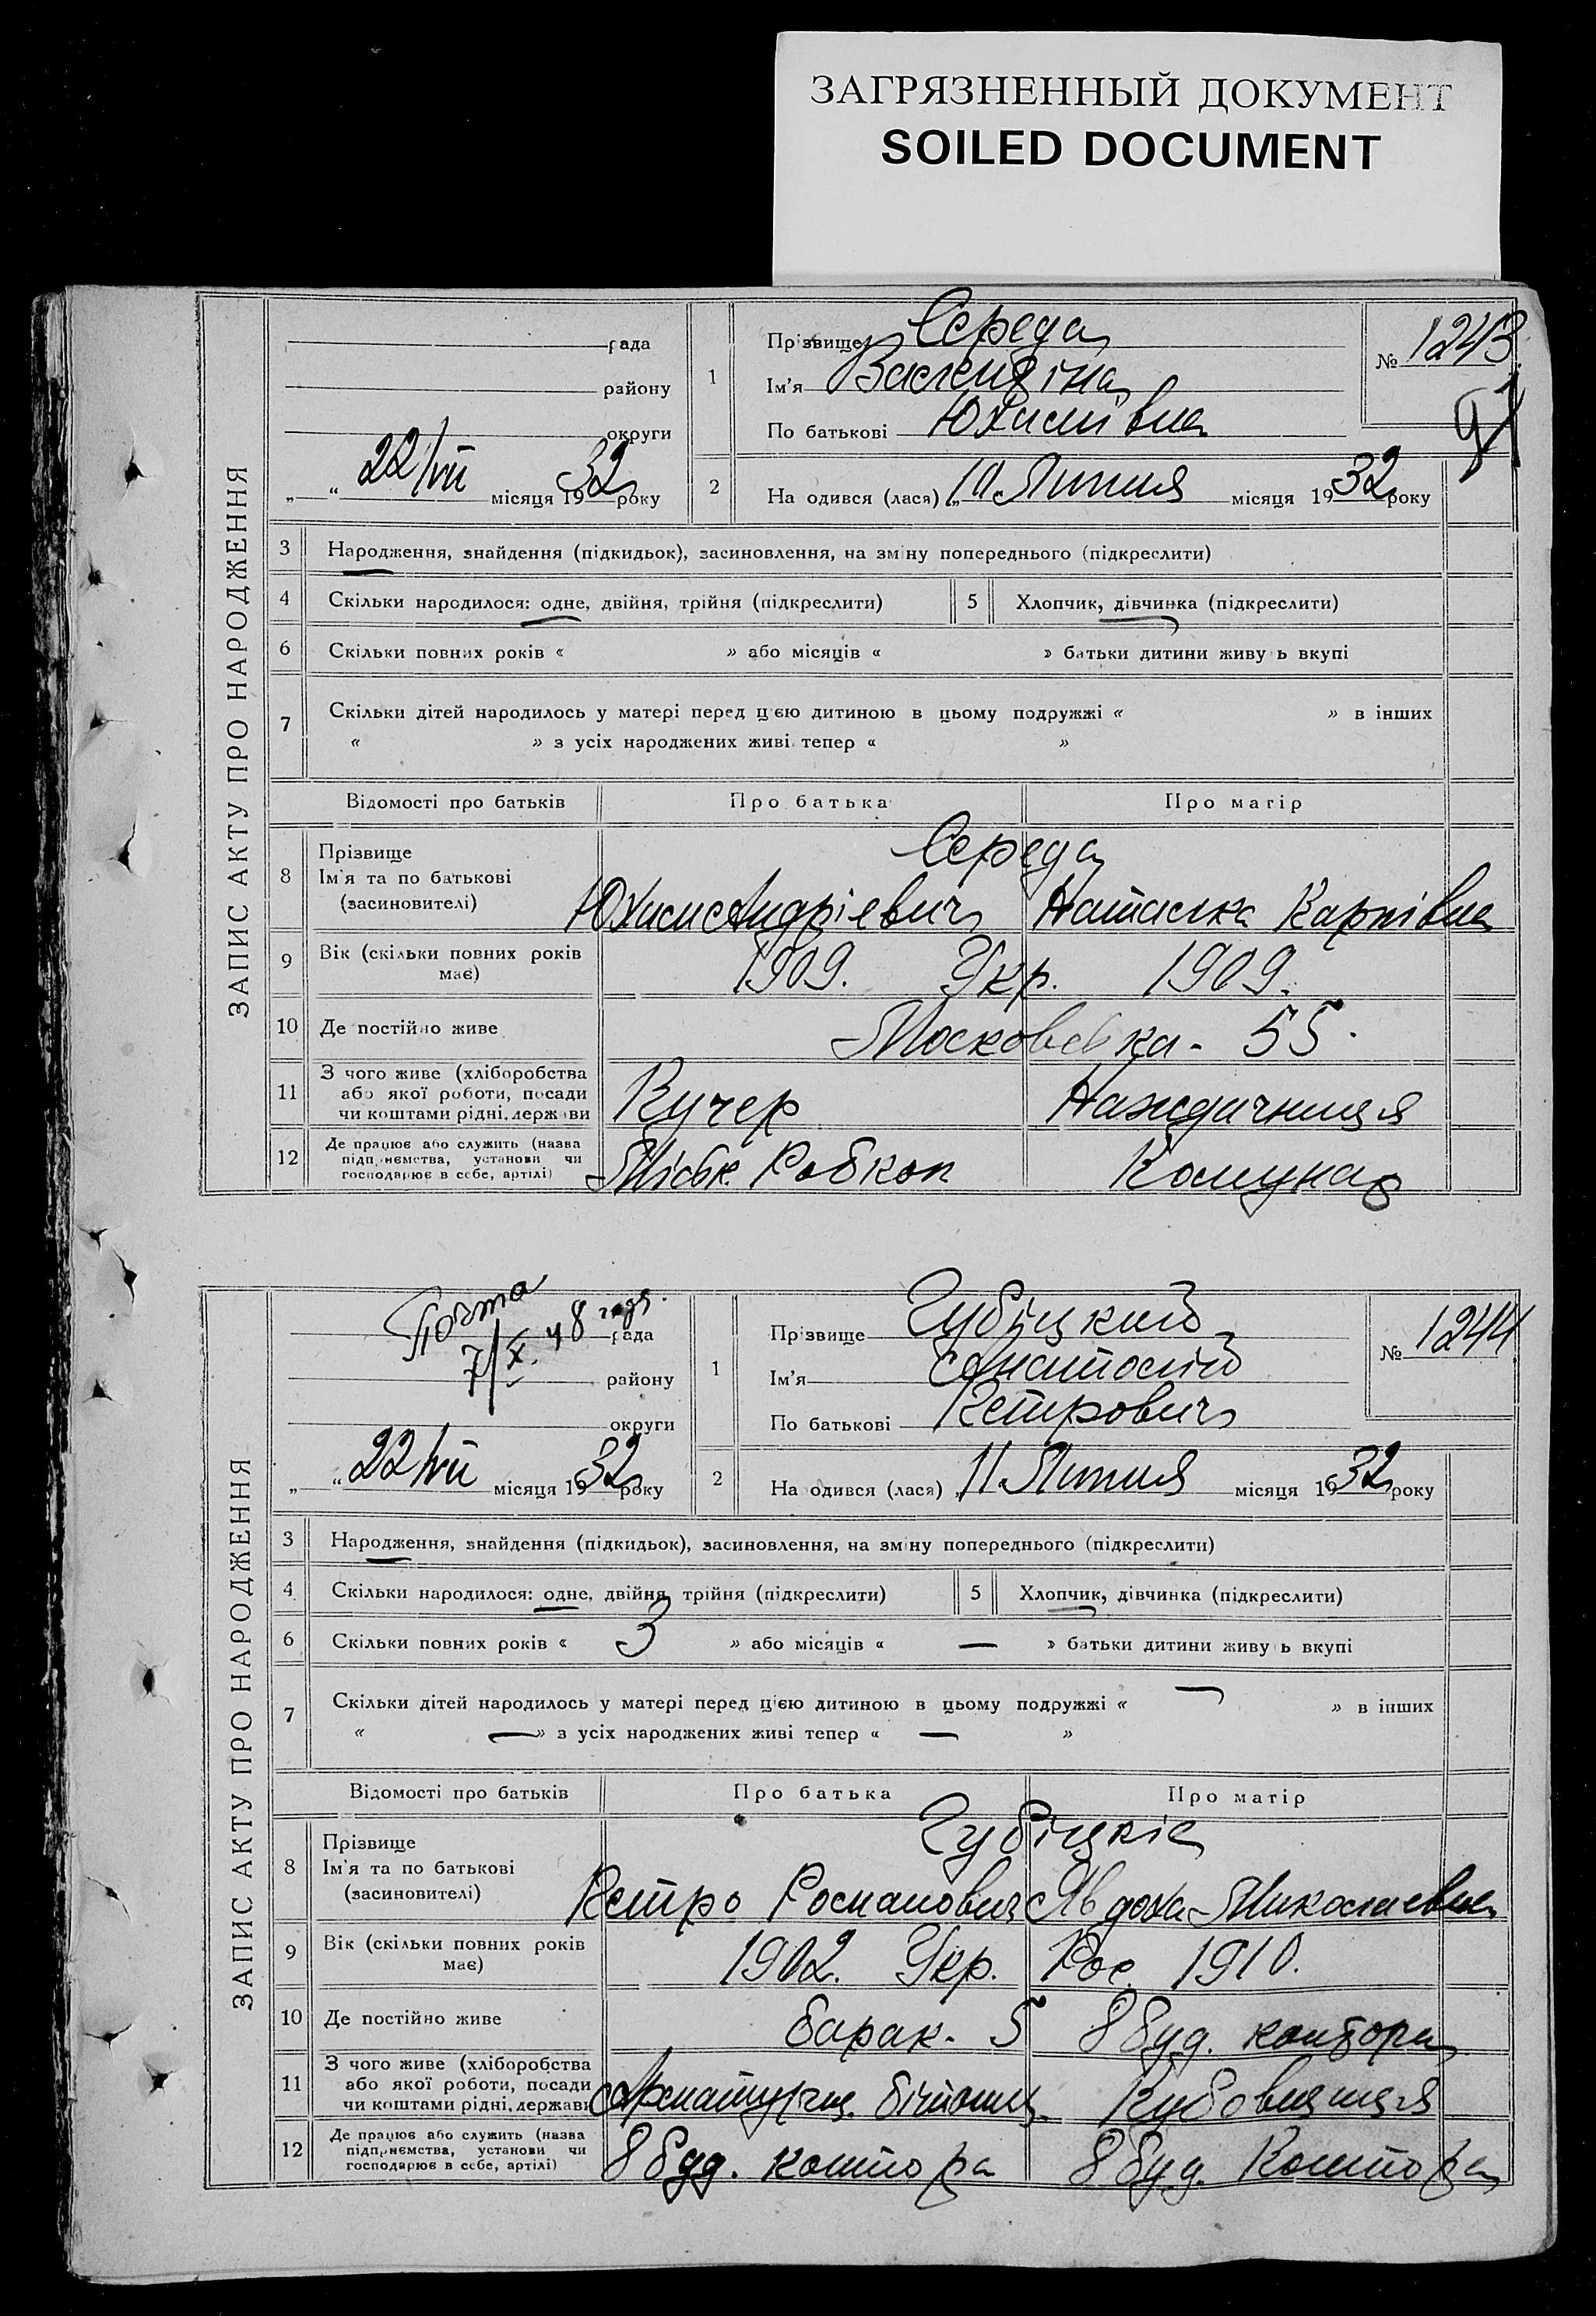 ЗАГРЯЗНЕННЫЙ ДОКУМЕНТ
SOILED DOCUMENT
ЗАПИС АКТУ ПРО НАРОДЖЕННЯ
рада
району
округи
„ “ 22/VII місяця 1932 року
1
Прізвище Середа
Ім'я Валентіна
По батькові Юхимівна
№ 1243
2
На одився (лася) „10 Липня місяця 1932 року
3 Народження, знайдення (підкидьок), засиновлення, на зміну попереднього (підкреслити)
4 Скільки народилося: одне, двійня, трійня (підкреслити) 5 Хлопчик, дівчинка (підкреслити)
6 Скільки повних років « » або місяців « » батьки дитини живу ь вкупі
7 Скільки дітей народилось у матері перед цією дитиною в цьому подружжі « » в інших
« » з усіх народжених живі тепер « »
Відомості про батьків Про батька Про матір
8 Прізвище Середа
Ім'я та по батькові
(засиновителі) Юхим Андріевич Наталка Карпівна
9 Вік (скільки повних років має) 1909. Укр. 1909.
10 Де постійно живе Московська - 55.
11 З чого живе (хліборобства
або якої роботи, посади
чи коштами рідні, держави Кучер Наждачниця
12 Де працює або служить (назва
підприємства, установи чи
господарює в себе, артілі) Міськ. Робкоп Комунар
ЗАПИС АКТУ ПРО НАРОДЖЕННЯ
7/X. 48 года.
рада
району
округи
„ “ 22/VII місяця 1932 року
1
Прізвище Губіцкий
Ім'я Анатолій
По батькові Петрович
№ 1244
2
На одився (лася) „11 Липня місяця 1932 року
3 Народження, знайдення (підкидьок), засиновлення, на зміну попереднього (підкреслити)
4 Скільки народилося: одне, двійня, трійня (підкреслити) 5 Хлопчик, дівчинка (підкреслити)
6 Скільки повних років « 3 » або місяців « — » батьки дитини живу ь вкупі
7 Скільки дітей народилось у матері перед цією дитиною в цьому подружжі « — » в інших
« — » з усіх народжених живі тепер « — »
Відомості про батьків Про батька Про матір
8 Прізвище Губіцкіе
Ім'я та по батькові
(засиновителі) Петро Романович Явдоха Миколаевна
9 Вік (скільки повних років має) 1902. Укр. Рос. 1910.
10 Де постійно живе барак - 5 8 буд. контора
11 З чого живе (хліборобства
або якої роботи, посади
чи коштами рідні, держави
12 Де працює або служить (назва
підприємства, установи чи
господарює в себе, артілі) 8 буд. контора 8 буд. контора